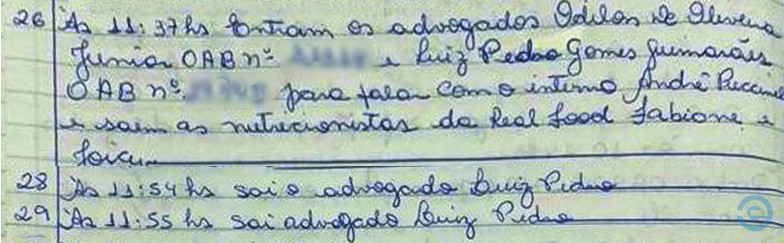 26 Às 11:37hs Entram os advogados Odilon de Oliveira
Junior OAB nº e Luiz Pedro Gomes Guimarães
OAB nº para falar com o interno André Puccinel
e saem as nutricionistas da Real food Fabiane e
28 Às 11:54 hs sai o advogado Luiz Pedro
29 Às 11:55 hs sai advogado Luiz Pedro